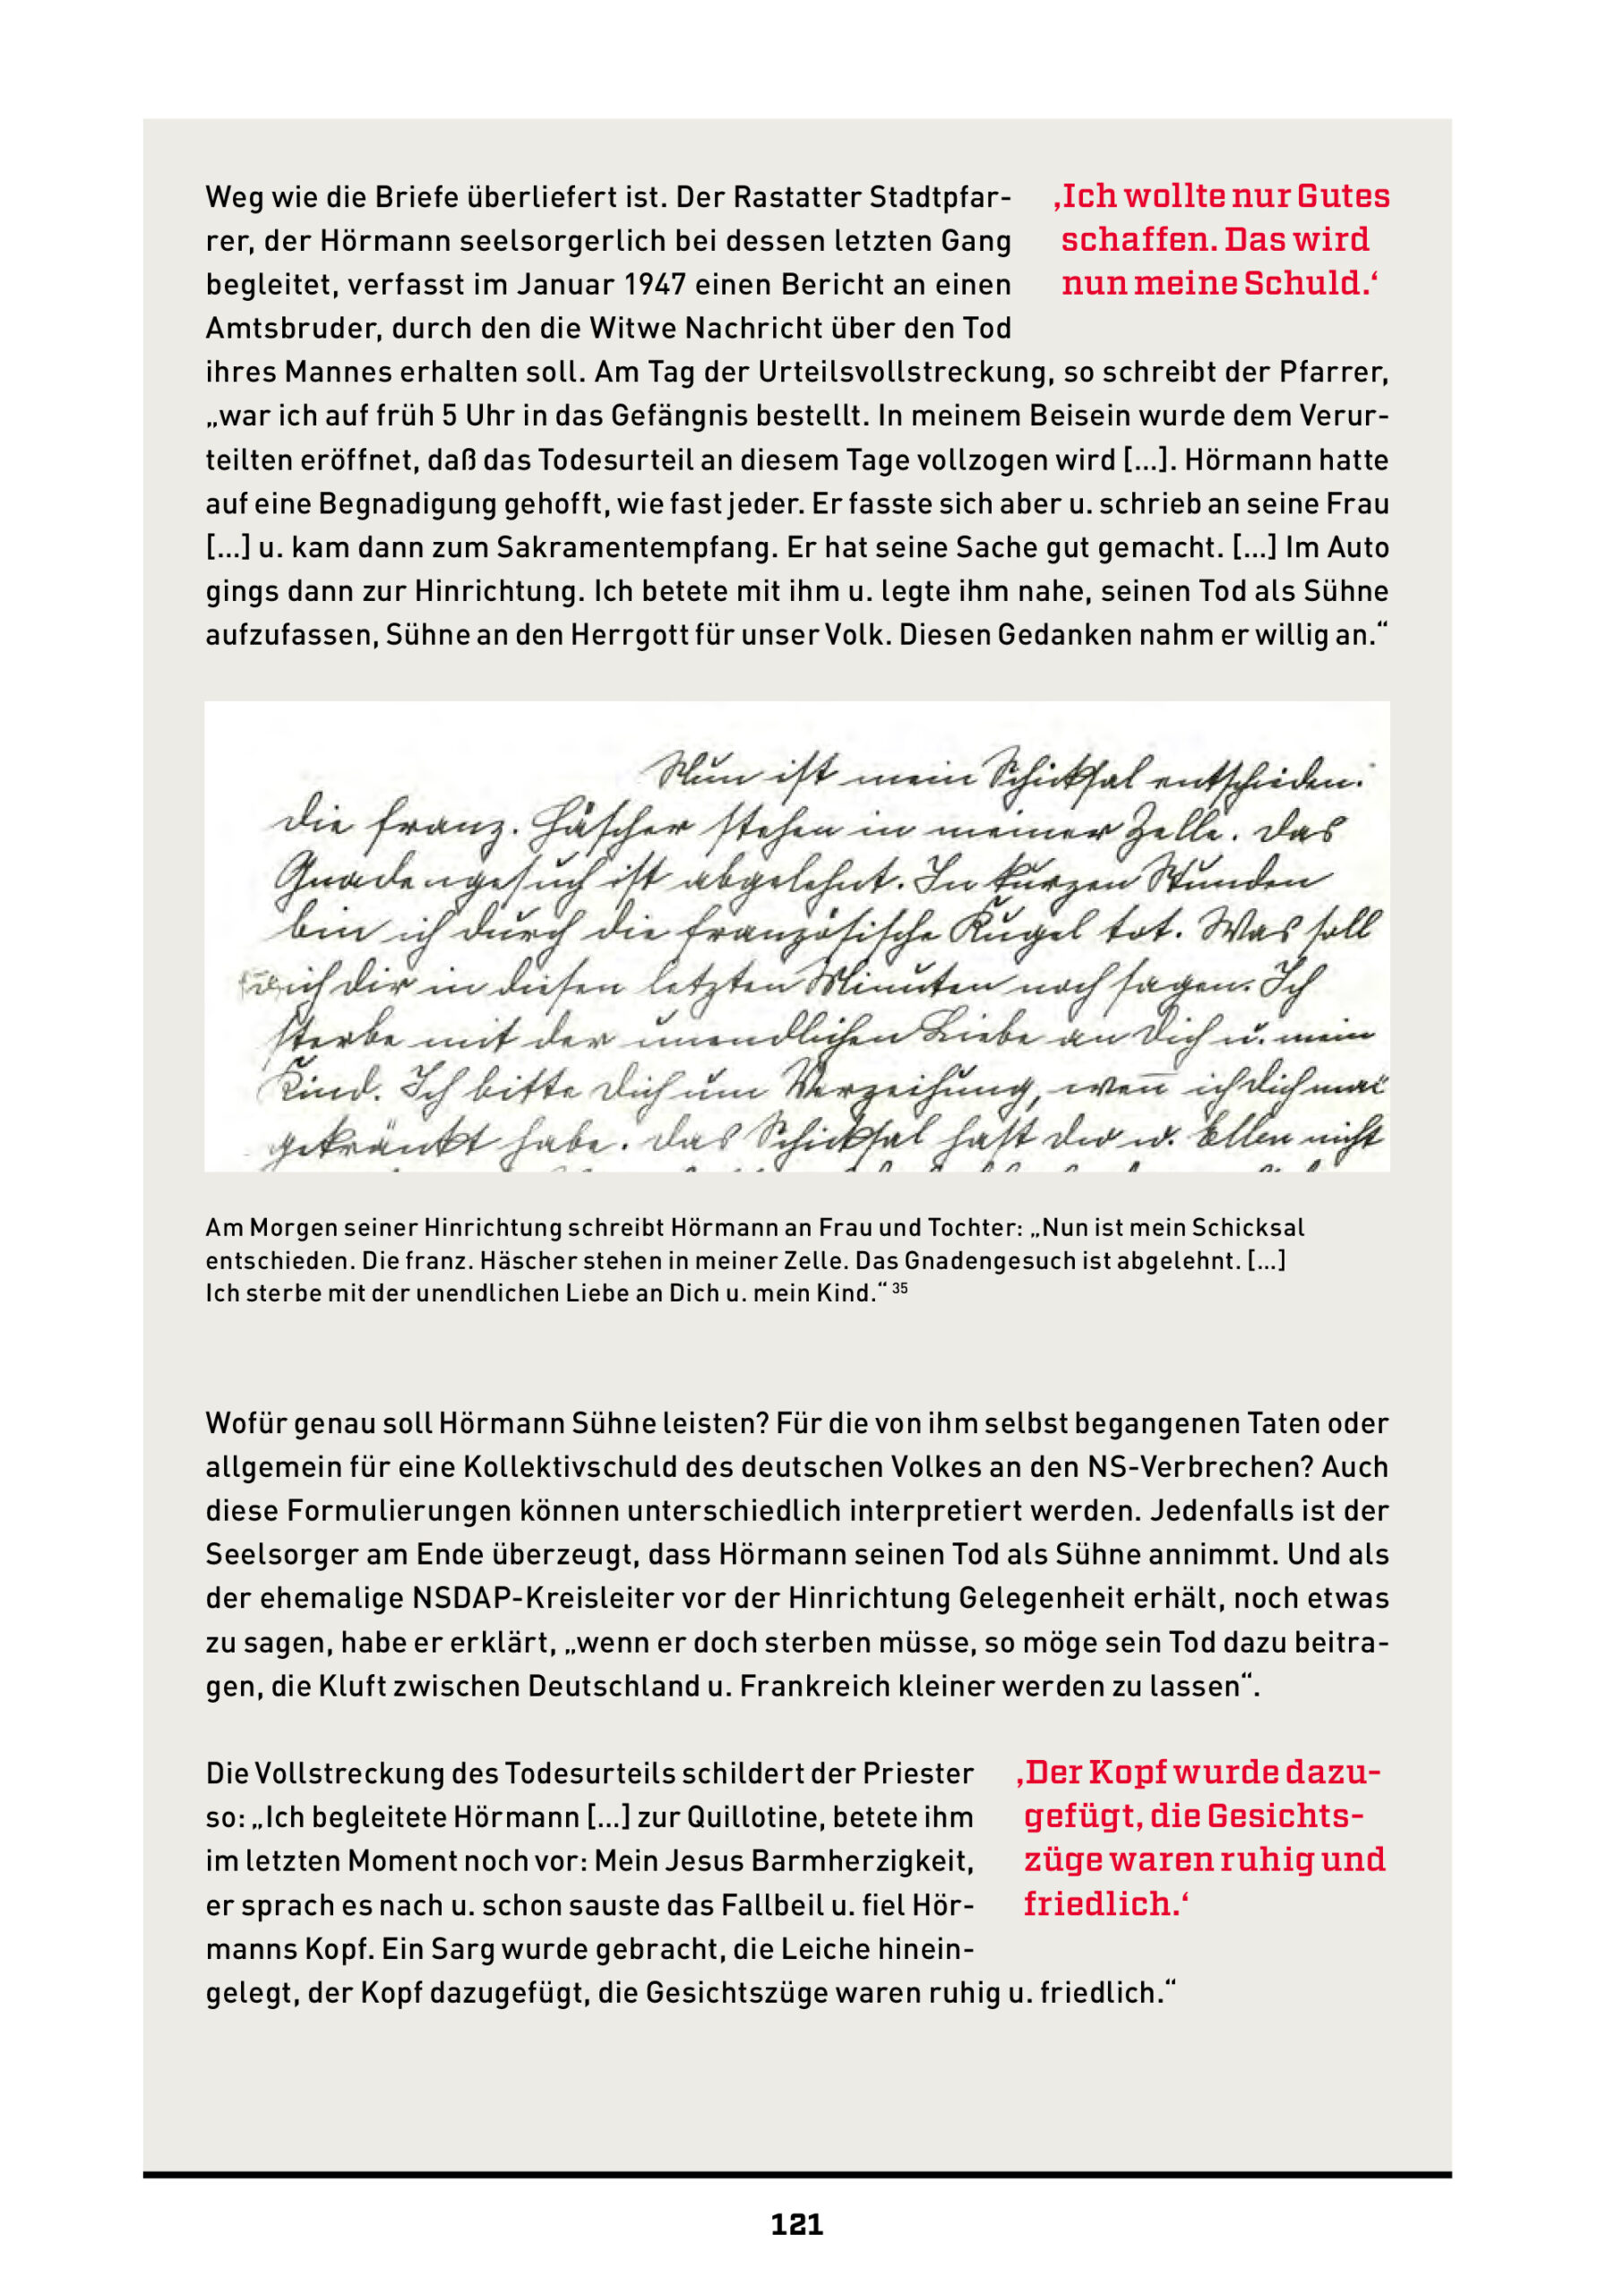 Weg wie die Briefe überliefert ist. Der Rastatter Stadtpfar-
rer, der Hörmann seelsorgerlich bei dessen letzten Gang
begleitet, verfasst im Januar 1947 einen Bericht an einen
Amtsbruder, durch den die Witwe Nachricht über den Tod
ihres Mannes erhalten soll. Am Tag der Urteilsvollstreckung, so schreibt der Pfarrer,
„war ich auf früh 5 Uhr in das Gefängnis bestellt. In meinem Beisein wurde dem Verur-
teilten eröffnet, daß das Todesurteil an diesem Tage vollzogen wird [...]. Hörmann hatte
auf eine Begnadigung gehofft, wie fast jeder. Er fasste sich aber u. schrieb an seine Frau
[...] u. kam dann zum Sakramentempfang. Er hat seine Sache gut gemacht. [...] Im Auto
gings dann zur Hinrichtung. Ich betete mit ihm u. legte ihm nahe, seinen Tod als Sühne
aufzufassen, Sühne an den Herrgott für unser Volk. Diesen Gedanken nahm er willig an.“
‚Ich wollte nur Gutes
schaffen. Das wird
nun meine Schuld.‘
Nun ist mein Schicksal entschieden.
Die franz. Häscher stehen in meiner Zelle. Das
Gnadengesuch ist abgelehnt. In kurzen Stunden
bin ich durch die französische Kugel tot. Was soll
ich dir in diesen letzten Minuten noch sagen. Ich
sterbe mit der unendlichen Liebe an Dich u. mein
Kind. Ich bitte Dich um Verzeihung, wen̄ ich Dich mal
gekränkt habe. Das Schicksal hast Du u. Ellen nicht
Am Morgen seiner Hinrichtung schreibt Hörmann an Frau und Tochter: „Nun ist mein Schicksal
entschieden. Die franz. Häscher stehen in meiner Zelle. Das Gnadengesuch ist abgelehnt. [...]
Ich sterbe mit der unendlichen Liebe an Dich u. mein Kind.“ 35
Wofür genau soll Hörmann Sühne leisten? Für die von ihm selbst begangenen Taten oder
allgemein für eine Kollektivschuld des deutschen Volkes an den NS-Verbrechen? Auch
diese Formulierungen können unterschiedlich interpretiert werden. Jedenfalls ist der
Seelsorger am Ende überzeugt, dass Hörmann seinen Tod als Sühne annimmt. Und als
der ehemalige NSDAP-Kreisleiter vor der Hinrichtung Gelegenheit erhält, noch etwas
zu sagen, habe er erklärt, „wenn er doch sterben müsse, so möge sein Tod dazu beitra-
gen, die Kluft zwischen Deutschland u. Frankreich kleiner werden zu lassen“.
Die Vollstreckung des Todesurteils schildert der Priester
so: „Ich begleitete Hörmann [...] zur Quillotine, betete ihm
im letzten Moment noch vor: Mein Jesus Barmherzigkeit,
er sprach es nach u. schon sauste das Fallbeil u. fiel Hör-
manns Kopf. Ein Sarg wurde gebracht, die Leiche hinein-
gelegt, der Kopf dazugefügt, die Gesichtszüge waren ruhig u. friedlich.“
‚Der Kopf wurde dazu-
gefügt, die Gesichts-
züge waren ruhig und
friedlich.‘
121